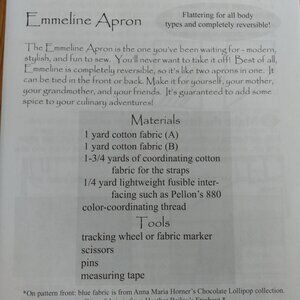 Emmeline Apron
Flattering for all body
types and completely reversible!
The Emmeline Apron is the one you've been waiting for - modern,
stylish, and fun to sew. You'll never want to take it off! Best of all,
Emmeline is completely reversible, so it's like two aprons in one. It
can be tied in the front or back. Make it for yourself, your mother,
your grandmother, and your friends. It's guaranteed to add some
spice to your culinary adventures!
Materials
1 yard cotton fabric (A)
1 yard cotton fabric (B)
1-3/4 yards of coordinating cotton
fabric for the straps
1/4 yard lightweight fusible inter-
facing such as Pellon's 880
color-coordinating thread
Tools
tracking wheel or fabric marker
scissors
pins
measuring tape
*On pattern front: blue fabric is from Anna Maria Horner's Chocolate Lollipop collection.